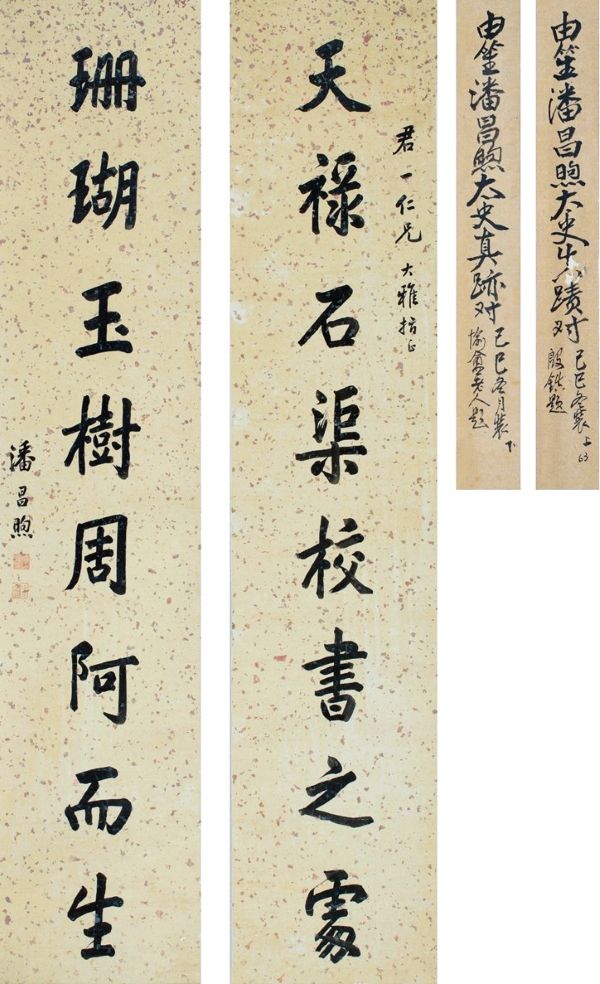 天祿石渠校書之處
君一仁兄大雅指正
珊瑚玉樹周阿而生
潘昌煦
由笙潘昌煦太史真蹟对
己巳冬装 上 63
殷鐵題
由笙潘昌煦太史真跡对
己巳冬月装 下
老人題